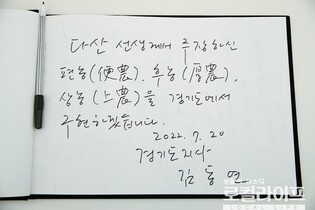 다산 선생께서 주장하신
편농(便農), 후농(厚農),
상농(上農)을 경기도에서
구현하겠습니다.
2022. 7. 20
경기도지사
김동연
로컬라이프
LOCAL LIFE